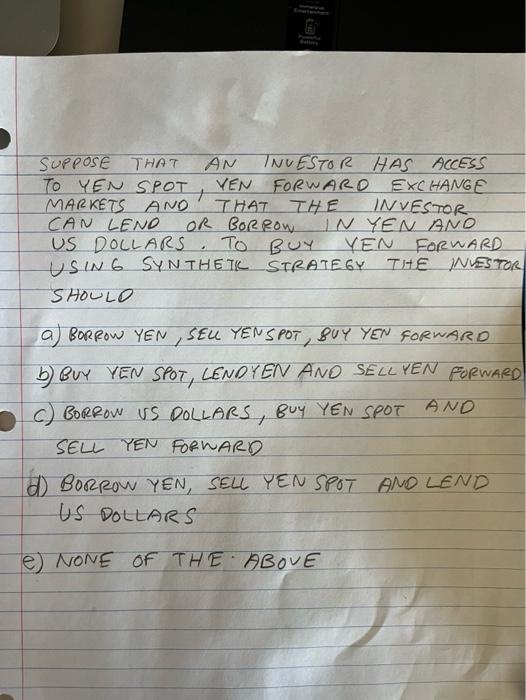 Immersive
Entertainment
Powerful
Battery
SUPPOSE THAT AN INVESTOR HAS ACCESS
TO YEN SPOT, YEN FORWARD EXCHANGE
MARKETS AND THAT THE INVESTOR
CAN LEND OR BORROW IN YEN AND
US DOLLARS. TO BUY YEN FORWARD
USING SYNTHETIC STRATEGY THE INVESTOR
SHOULD
a) BORROW YEN, SELL YEN SPOT, BUY YEN FORWARD
b) BUY YEN SPOT, LEND YEN AND SELL YEN FORWARD
c) BORROW US DOLLARS, BUY YEN SPOT AND
SELL YEN FORWARD
d) BORROW YEN, SELL YEN SPOT AND LEND
US DOLLARS
e) NONE OF THE ABOVE